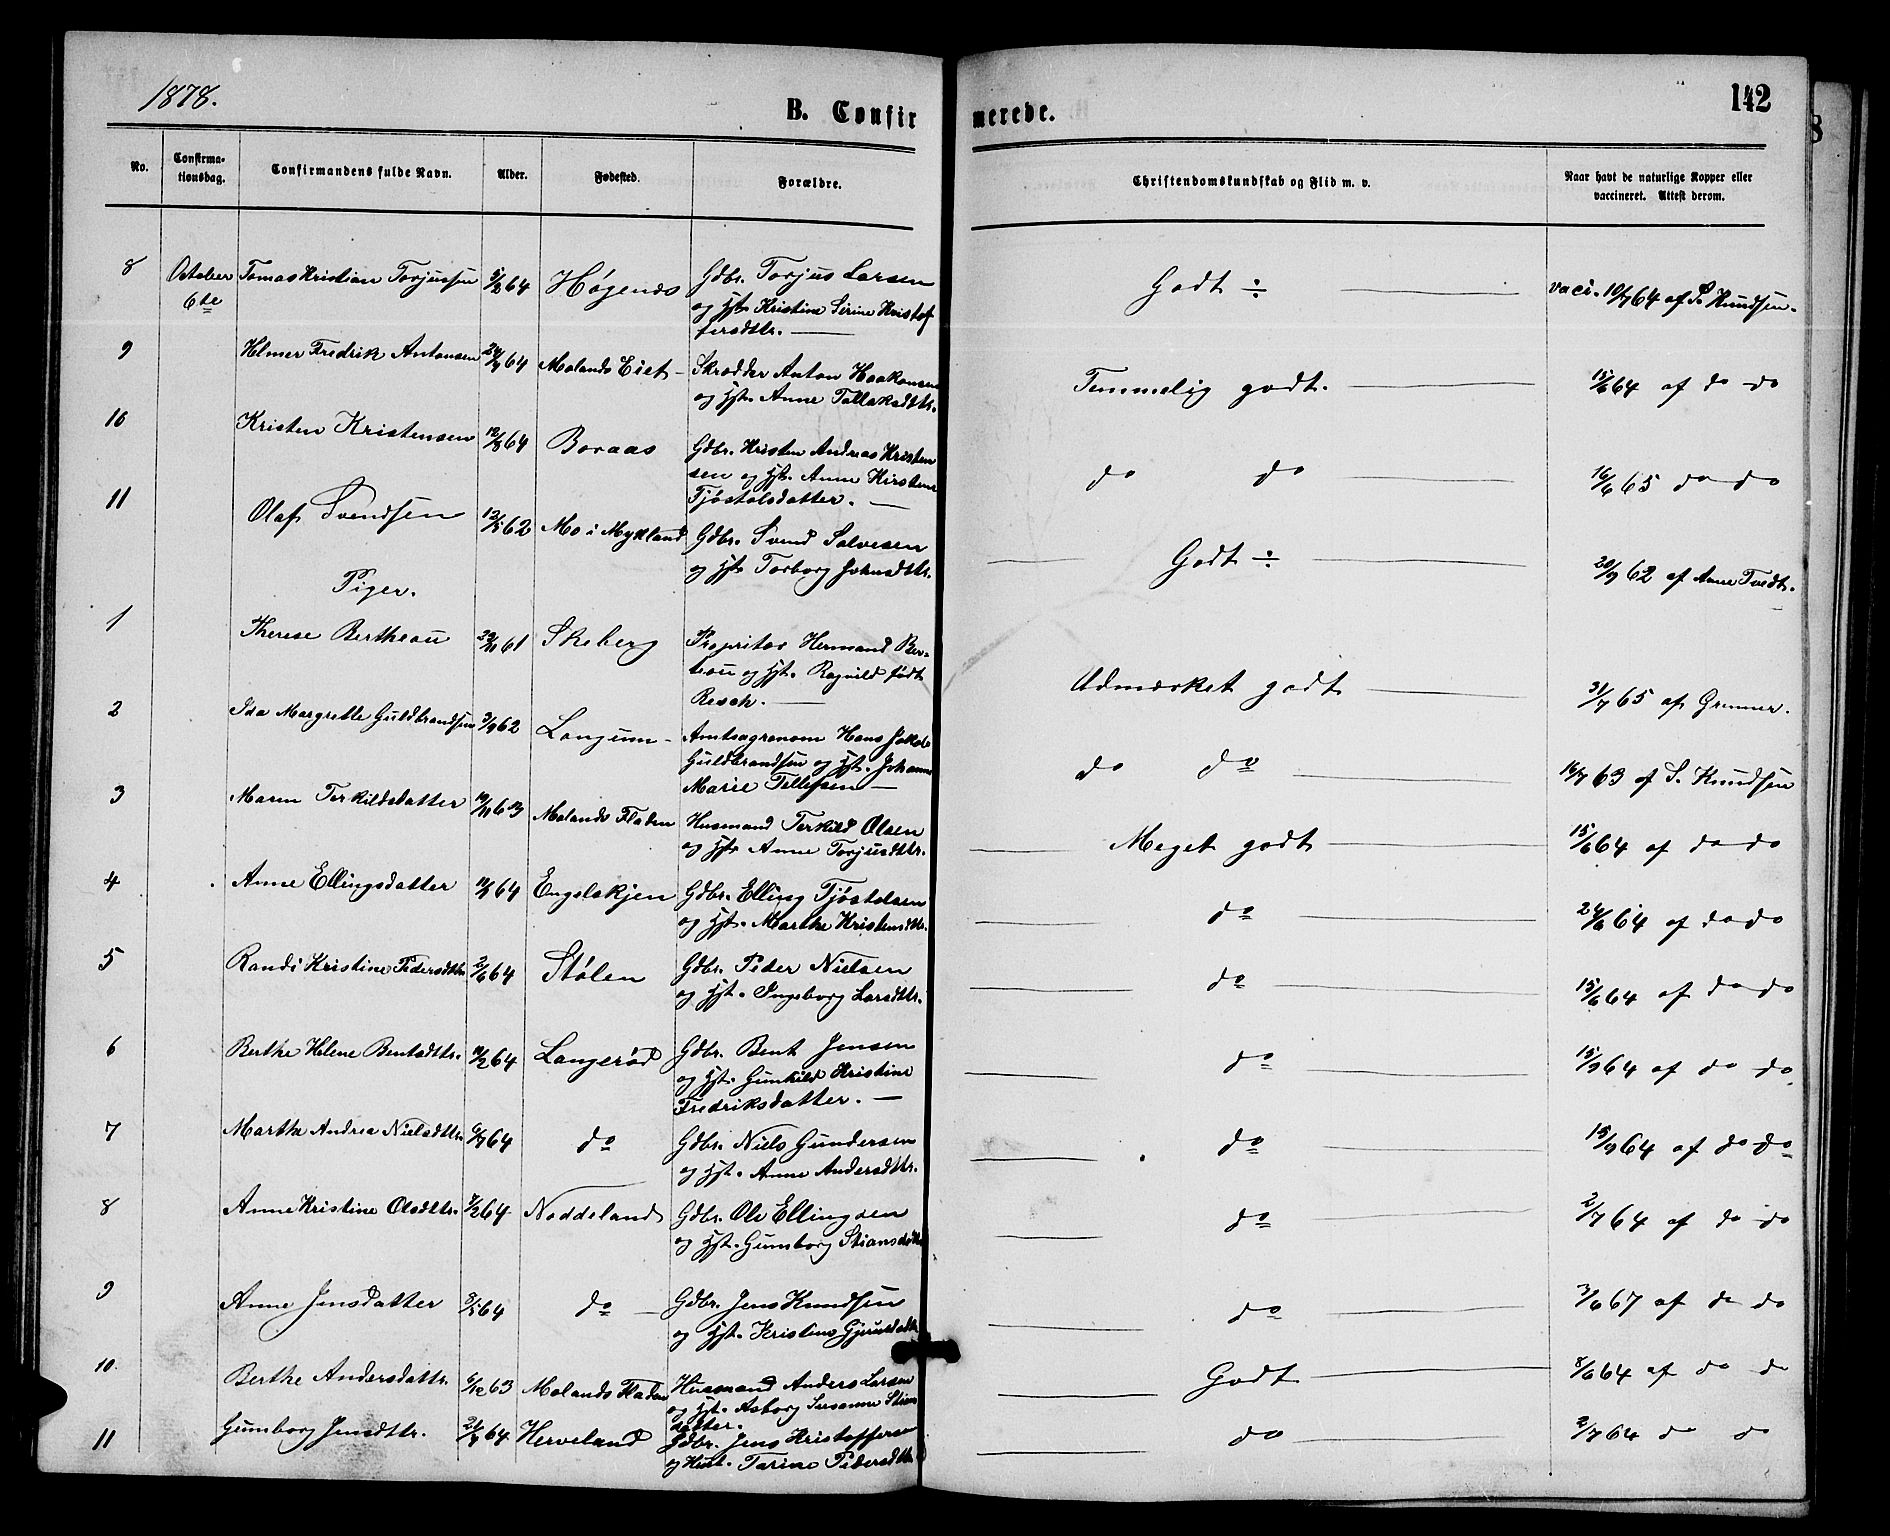 1878.
B. Confirmerede.
142
No.
Confirma-
tionsdag.
Confirmandens fulde Navn.
Alder.
Fødested.
Forældre.
Christendomskundskab og Flid m. v.
Naar havt de naturlige Kopper eller
vaccineret. Attest derom.
8 October 6te Tomas Kristian Torjussen 5/2 64 Høgenes Gdbr. Torjus Larsen
og Hst. Kristine Serine Kristof
fersdttr. —
Godt ÷ — vaci. 10/7 64 af S. Knudsen.
9 Helmer Fredrik Antonsen 24/7 64 Molands Eiet - Skrædder Anton Haakonsen
og Hst. Anne Tallaksdttr.
Temmelig godt. — 15/6 64 af do do
10 Kristen Kristensen 12/8 64 Boraas Gdbr. Kristen Andreas Kristen
sen og Hst. Anne Kirstine
Tjøstolsdatter. —
do do 16/6 65 do do
11 Olaf Svendsen 12/5 62 Mo i Mykland Gdbr. Svend Salvesen
og Hst. Torborg Johnsdttr.
— Godt ÷ — 20/9 62 af Anne Tvedt.
Piger.
1 Therese Bertheau 61 Skeberg Propritær Hermand Ber-
teau og Hst. Ragnild født
Resch. —
Udmærket godt — 31/7 65 af Grenner.
2 Ida Margrethe Guldbrandsen 3/9 62 Langum - Amtsagronom Hans Jakob
Guldbrandsen og Hst. Johanne
Marie Tellefsen —
do do — 14/7 63 af S. Knudsen
3 Maren Terkildsdatter 63 Molands Fladen Husmand Terkild Olsen
og Hst. Anne Torjusdttr.
— Meget godt — 15/6 64 af do do
4 Anne Ellingsdatter 64 Engelskjen Gdbr. Elling Tjøstolsen
og Hst. Marthe Kristensdttr.
— do — 24/6 64 af do do
5 Randi Kristine Pedersdttr 2/6 64 Stølen Gdbr. Peder Nielsen
og Hst. Ingeborg Larsdttr.
— do — 15/6 64 af do do
6 Berthe Helene Bentsdttr. 64 Langerød Gdbr. Bent Jensen
og Hst. Gunhild Kristine
Fredriksdatter. —
— do 15/9 64 af do do
7 Marthe Andrea Nielsdttr. 6/7 64 do Gdbr. Niels Gundersen
og Hst. Anne Andersdttr.
— do 15/9 64 af do do
8 Anne Kristine Olsdttr. 7/2 64 Noddeland Gdbr. Ole Ellingsen
og Hst. Gunborg Stiansdatter
— do — 2/7 64 af do do
9 Anne Jensdatter 8/5 64 do — Gdbr. Jens Knudsen
og Hst. Kristens
— do — 3/6 67 af do do
10. Berthe Andersdattr. 6/12 63 Molands Fladen Husmand Anders Larsen
og Hst. Asborg Susanne Stian
datter.
— Godt — 8/6 64 af do do
11 Gunborg Jensdttr. 64 Herveland Gdbr. Jens Kristoffersen
og Hust. Tarine Pedersdttr
— do — 2/7 64 do do